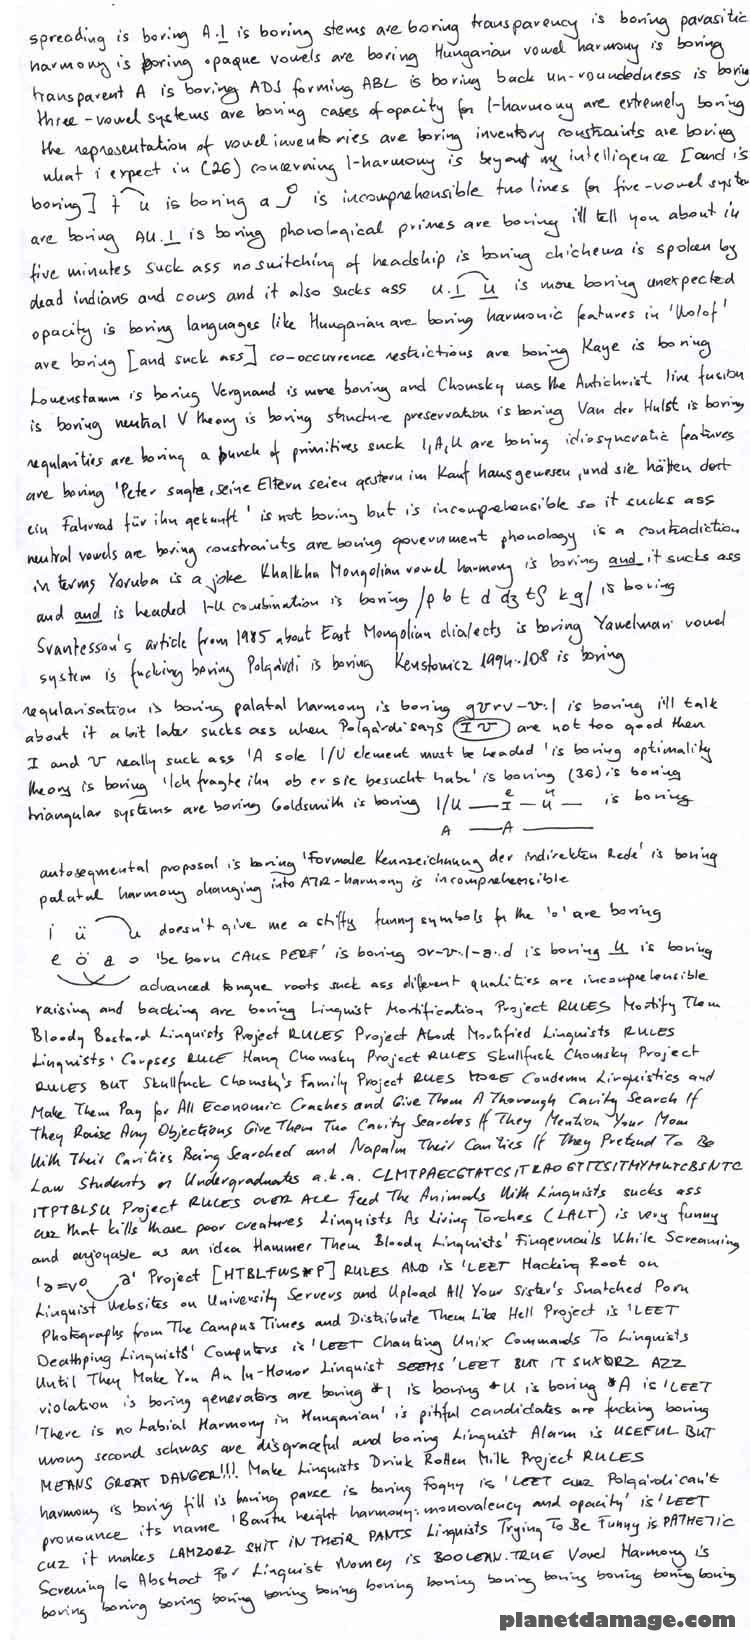 spreading is boring A.I is boring stems are boring transparency is boring parasitic
harmony is boring opaque vowels are boring Hungarian vowel harmony is boring
transparent A is boring ADJ forming ABL is boring back un-roundedness is boring
three-vowel systems are boring cases of opacity for I-harmony are extremely boring
the representation of vowel inventories are boring inventory constraints are boring
what i expect in (26) concerning I-harmony is beyond my intelligence [and is
boring] ɨ u is boring a is incomprehensible two lines for five-vowel system
are boring AU.I is boring phonological primes are boring i'll tell you about in
five minutes suck ass no switching of headship is boring chichewa is spoken by
dead indians and cows and it also sucks ass u.I u is more boring unexpected
opacity is boring languages like Hungarian are boring harmonic features in 'Wolof'
are boring [and suck ass] co-occurrence restrictions are boring Kaye is boring
Lowenstamm is boring Vergnaud is more boring and Chomsky was the Antichrist line fusion
is boring neutral V theory is boring structure preservation is boring Van der Hulst is boring
regularities are boring a bunch of primitives suck I,A,U are boring idiosyncratic features
are boring 'Peter sagte, seine Eltern seien gestern im Kaufhaus gewesen, und sie hätten dort
ein Fahrrad für ihn gekauft' is not boring but is incomprehensible so it sucks ass
neutral vowels are boring constraints are boring government phonology is a contradiction
in terms Yoruba is a joke Khalkha Mongolian vowel harmony is boring and it sucks ass
and and is headed I-U combination is boring /p b t d dʒ tʃ k g/ is boring
Svantesson's article from 1985 about East Mongolian dialects is boring Yawelmani vowel
system is fucking boring Polgárdi is boring Kenstowicz 1994:108 is boring
regularisation is boring palatal harmony is boring gʊrv-ʊ:l is boring i'll talk
about it a bit later sucks ass when Polgárdi says I ʊ are not too good then
I and ʊ really suck ass 'A sole I/U element must be headed' is boring optimality
theory is boring 'Ich fragte ihn ob er sie besucht habe' is boring (36) is boring
triangular systems are boring Goldsmith is boring I/U — I — U — is boring
A — A —
autosegmental proposal is boring 'Formale Kennzeichnung der indirekten Rede' is boring
palatal harmony changing into ATR-harmony is incomprehensible
i ü u doesn't give me a stiffy funny symbols for the 'o' are boring
e ö a o 'be born CAUS PERF' is boring or-ʊ:l-a:d is boring u is boring
advanced tongue roots suck ass different qualities are incomprehensible
raising and backing are boring Linguist Mortification Project RULES Mortify Them
Bloody Bastard Linguists Project RULES Project About Mortified Linguists RULES
Linguists' Corpses RULE Hang Chomsky Project RULES Skullfuck Chomsky Project
RULES BUT Skullfuck Chomsky's Family Project RULES MORE Condemn Linguistics and
Make Them Pay for All Economic Crashes and Give Them A Thorough Cavity Search If
They Raise Any Objections Give Them Two Cavity Searches If They Mention Your Mom
With Their Cavities Being Searched and Napalm Their Cavities If They Pretend To Be
Law Students or Undergraduates a.k.a.
Project RULES OVER ALL Feed The Animals With Linguists sucks ass
cuz that kills those poor creatures Linguists As Living Torches (LALT) is very funny
and enjoyable as an idea Hammer Them Bloody Linguists' Fingernails While Screaming
Project [HTBLFWS*P] RULES AND is 'LEET Hacking Root on
Linguist Websites on University Servers and Upload All Your Sister's Snatched Porn
Photographs from The Campus Times and Distribute Them Like Hell Project is 'LEET
Deathping Linguists' Computers is 'LEET Chanting Unix Commands To Linguists
Until They Make You An In-Honor Linguist SEEMS 'LEET BUT IT SUXORZ AZZ
violation is boring generators are boring *I is boring *U is boring *A is 'LEET
'There is no Labial Harmony in Hungarian' is pitiful candidates are fucking boring
wrong second schwas are disgraceful and boring Linguist Alarm is USEFUL BUT
MEANS GREAT DANGER!!! Make Linguists Drink Rotten Milk Project RULES
harmony is boring fill is boring parse is boring Fogny is 'LEET cuz Polgárdi can't
pronounce its name 'Bantu height harmony: monovalency and opacity' is 'LEET
cuz it makes LAMZORZ SHIT IN THEIR PANTS Linguists Trying To Be Funny is PATHETIC
Screwing Is Abstract For Linguist Women is BOOLEAN.TRUE Vowel Harmony is
boring boring boring boring boring boring boring boring boring boring boring boring boring
planetdamage.com